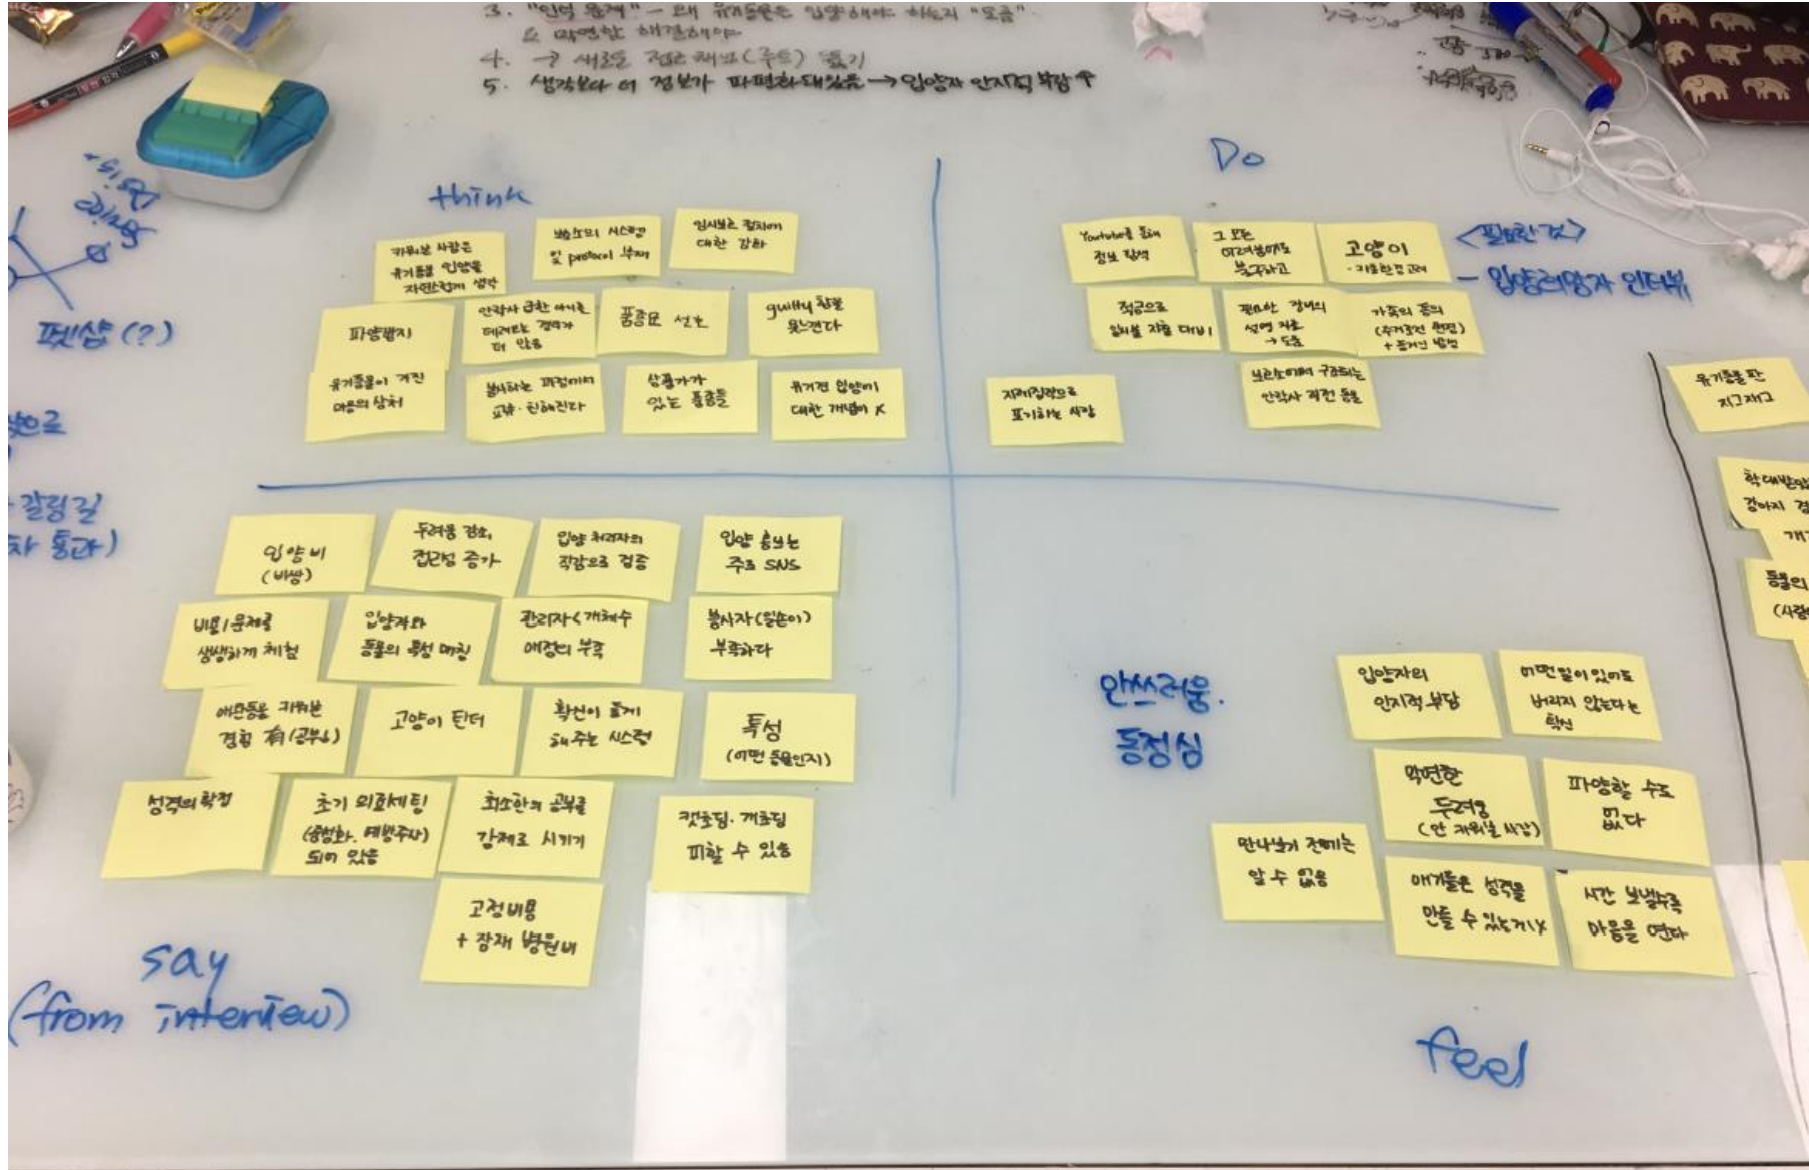 3. "인식 문제" - 왜 유기동물은 입양해야 하는지 "모름".
막연함 해결해야
4. → 새로운 접근 채널 (루트) 뚫기
5. 생각보다 더 정보가 파편화돼있음 → 입양자 인지적 부담 ↑
think
키워본 사람은
유기동물 입양을
자연스럽게 생각
보호소의 시스템
및 protocol 부재
임시보호 절차에
대한 강화
파양방지
안락사 급한 아이를
데려오는 경우가
더 많음
품종묘 선호
guilty 함을
못느낀다
유기동물이 가진
마음의 상처
봉사하는 과정에서
교류·친해진다
상품가가
있는 품종들
유기견 입양에
대한 개념이 X
Do
Youtube를 통해
정보 탐색
그 모든
어려움에도
불구하고
고양이
<필요한 것>
- 입양희망자 인터뷰
적금으로
일시불 지출 대비
필요한 장비의
설명 지원
→ 도움
가족의 동의
+ 동거인 방침
포기하는 사람
보호소에서 구조되는
안락사 직전 동물
Service
Design
펫샵 (?)
갈림길
통과)
입양비
(비쌈)
두려움 감소,
접근성 증가
입양 처리자의
직감으로 검증
입양 홍보는
주로 SNS
비용/문제를
생생하게 체험
입양자와
동물의 특성 매칭
관리자 < 개체수
애정의 부족
봉사자 (일손이)
부족하다
애완동물 키워본
경험 有 (공부↓)
고양이 틴더
확신이 들게
해주는 시스템
특성
(어떤 동물인지)
성격의 확정
초기 의료세팅
(중성화, 예방주사)
되어 있음
최소한의 공부를
강제로 시키기
캣초딩·개초딩
피할 수 있음
고정비용
+ 잠재 병원비
say
(from interview)
안쓰러움.
동정심
입양자의
인지적 부담
어떤 일이 있어도
버리지 않는다는
확신
막연한
두려움
(안 키워본 사람)
파양할 수도
없다
만나보기 전에는
알 수 없음
애기들은 성격을
만들 수 있는거 X
시간 보낼수록
마음을 연다
feel
유기동물 판
지그재그
학대받았
강아지
동물의